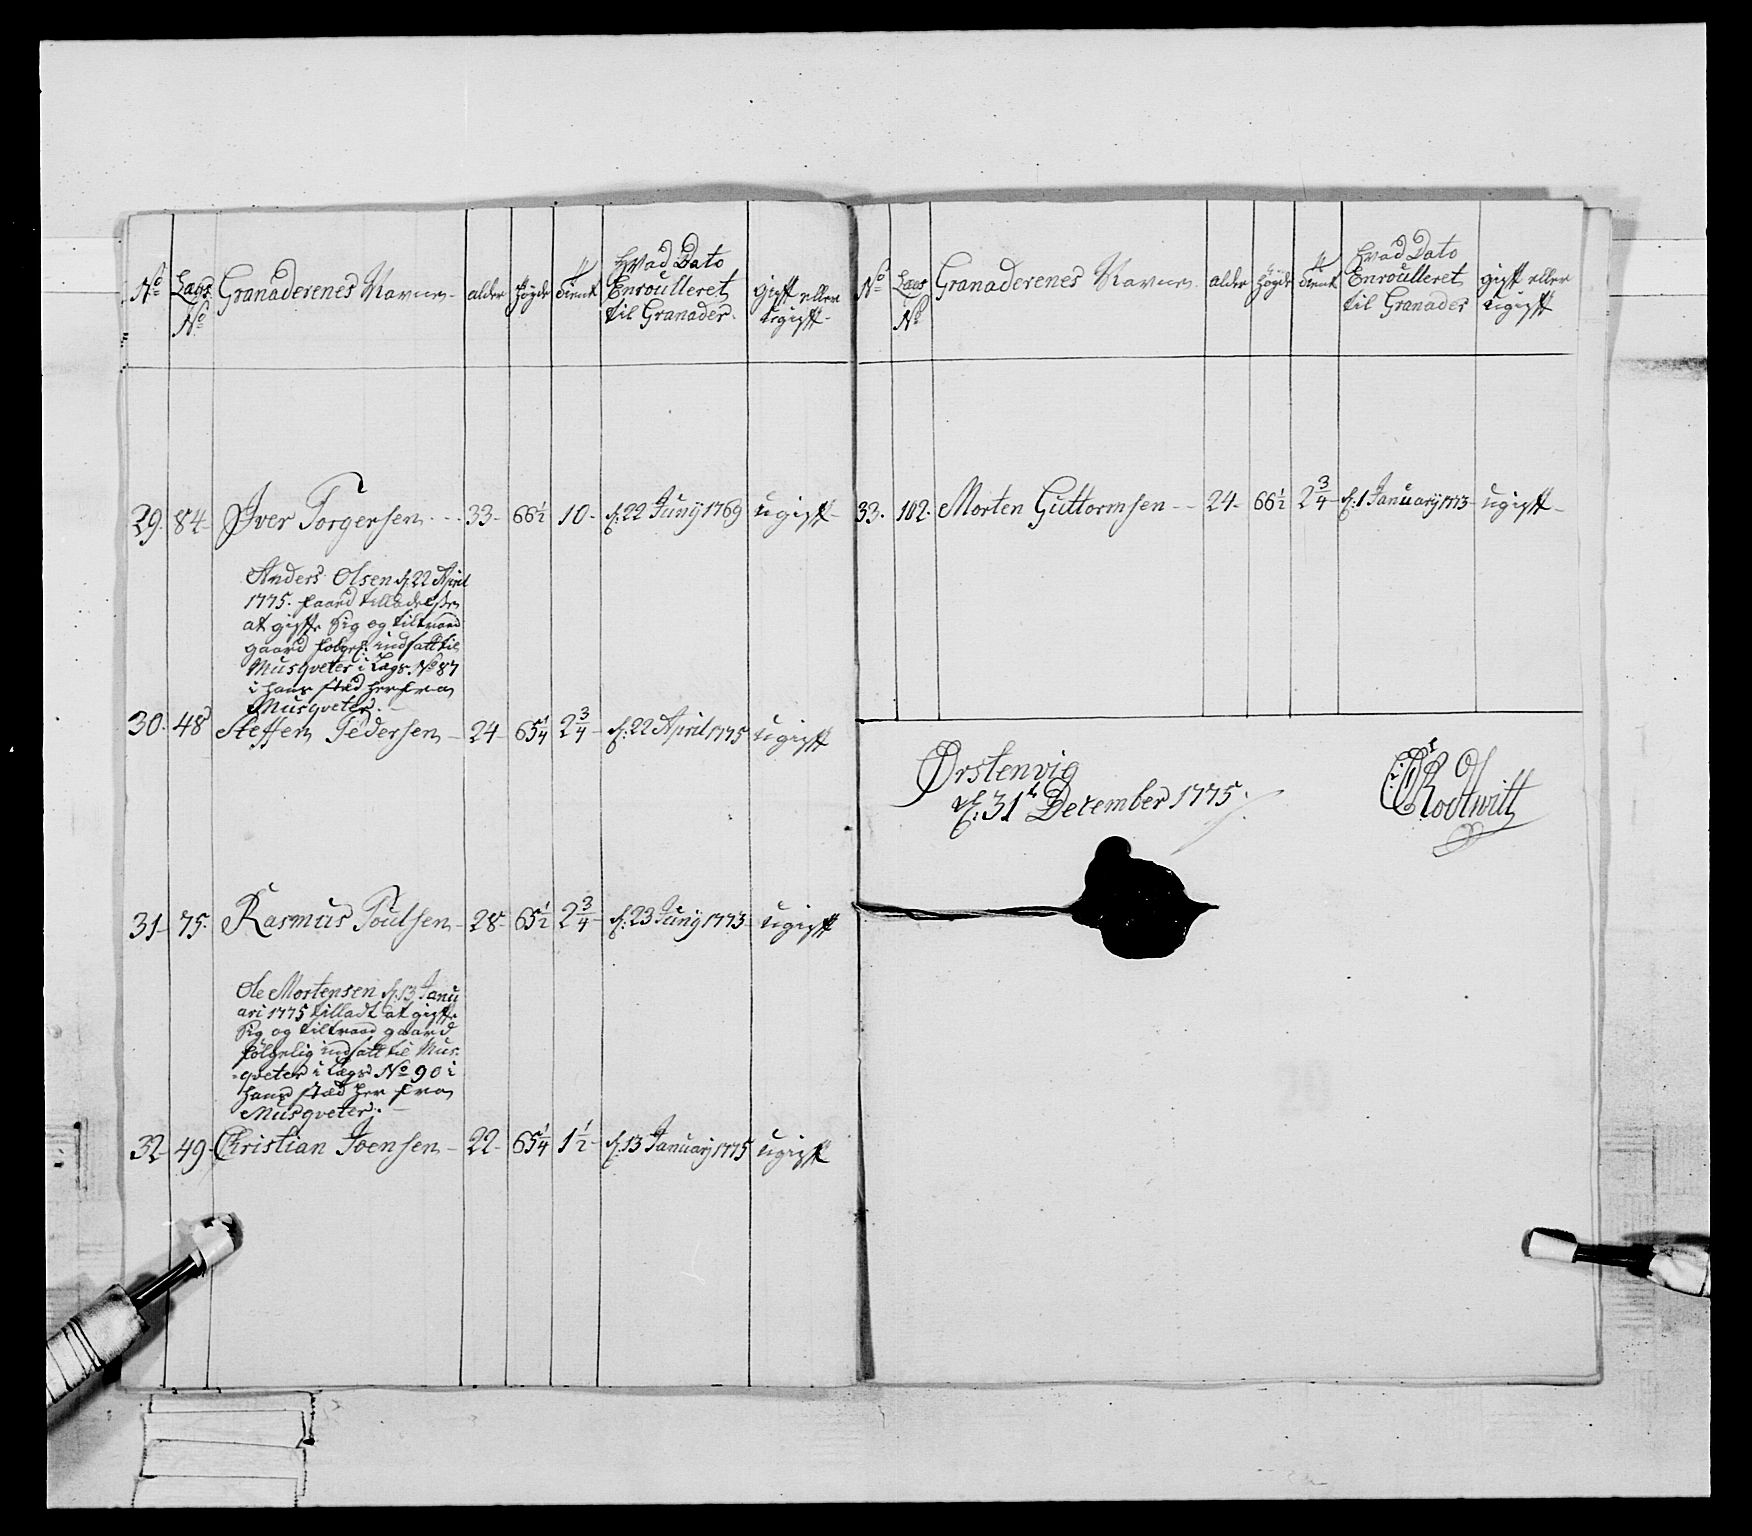 No
Lægs
No
Granaderenes Navne
alder
höyde
tient
Hvad Dato
Enroulleret
til Granader
gift eller
ugift
29. 84. Iver Torgersen 33 66 1/2 10 d. 22 Junÿ 1769 ugift
Anders Olsen d. 22 April
1775. faaed tilladelse
at gifte sig og tiltræde
gaard følgel: indsatt til
Musqveter i Lægs. No 87
i hans stæd her fra
Musqveter.
30. 48 Steffen Pedersen 24 65 1/4 2 3/4 d. 22 April 1775 ugift
31 75. Rasmus Poulsen 28 65 1/2 2 3/4 d. 23 Junÿ 1773 ugift
Ole Mortensen d. 13 Janu
ari 1775 tilladt at gifte
sig og tiltræde gaard
følgelig indsatt til Mus-
qveter i Lægs No 90 i
hans stæd her fra
Musqveter.
32 49 Christian Joensen 22 65 1/4 1 1/2 d. 13 Januarÿ 1775 ugift
No
Lægs
No
Granaderenes Navne
alder
höyde
tient
Hvad Dato
Enroulleret
til Granader
gift eller
ugift
33. 102. Morten Guttormsen 24 66 1/2 2 3/4 d. 1 Januarÿ 1773 ugift
Ørstenvig
d. 31t December 1775.
Rodtwitt